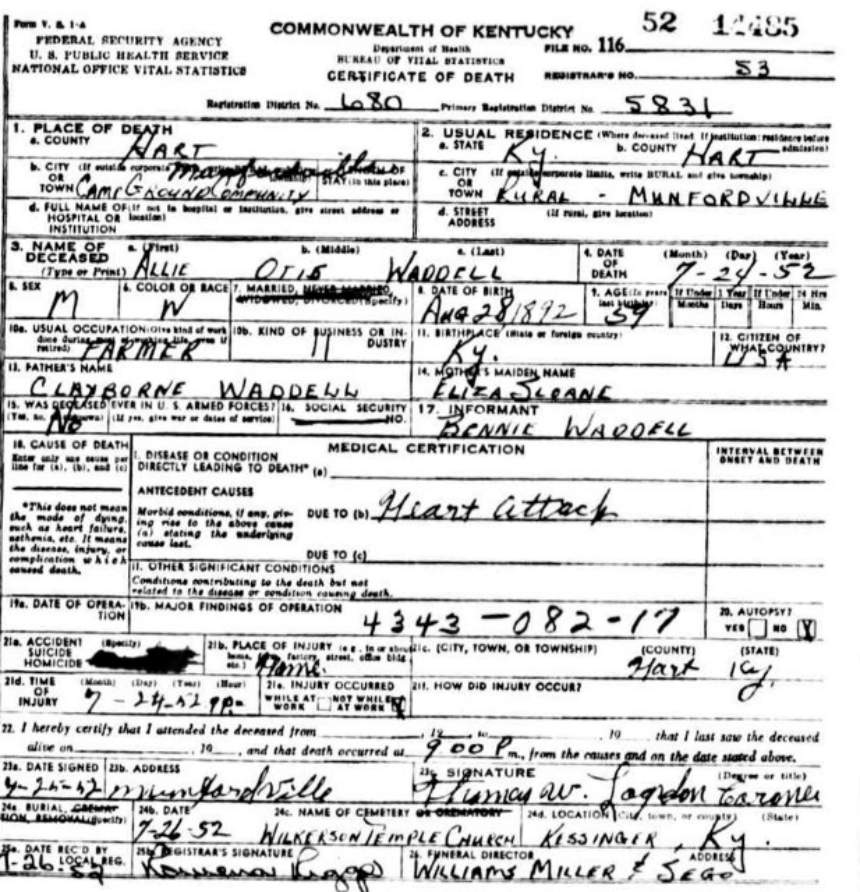 Form V. S. 1-A
FEDERAL SECURITY AGENCY
U. S. PUBLIC HEALTH SERVICE
NATIONAL OFFICE VITAL STATISTICS
COMMONWEALTH OF KENTUCKY
Department of Health
BUREAU OF VITAL STATISTICS
CERTIFICATE OF DEATH
52 14485
FILE NO. 116
REGISTRAR'S NO. 53
Registration District No. 680 Primary Registration District No. 5831
1. PLACE OF DEATH
a. COUNTY HART
2. USUAL RESIDENCE (Where deceased lived. If institution: residence before admission)
a. STATE Ky. b. COUNTY HART
b. CITY (If outside corporate
OR
TOWN CAMP GROUND COMMUNITY
STAY (in this place)
c. CITY (If outside corporate limits, write RURAL and give township)
OR
TOWN RURAL - MUNFORDVILLE
d. FULL NAME OF (If not in hospital or institution, give street address or location)
HOSPITAL OR
INSTITUTION
d. STREET ADDRESS (If rural, give location)
3. NAME OF DECEASED (Type or Print)
a. (First) b. (Middle) c. (Last)
ALLIE OTIS WADDELL
4. DATE OF DEATH (Month) (Day) (Year)
7-24-52
5. SEX M
6. COLOR OR RACE W
7. MARRIED, NEVER MARRIED, WIDOWED, DIVORCED (Specify)
8. DATE OF BIRTH
AUG 28 1892
9. AGE (In years last birthday) 59
If Under 1 Year Months Days
If Under 24 Hrs Hours Min.
10a. USUAL OCCUPATION (Give kind of work done during most of working life, even if retired) FARMER
10b. KIND OF BUSINESS OR INDUSTRY
11. BIRTHPLACE (State or foreign country)
Ky.
12. CITIZEN OF WHAT COUNTRY?
USA
13. FATHER'S NAME
CLAYBORNE WADDELL
14. MOTHER'S MAIDEN NAME
ELIZA SLOANE
15. WAS DECEASED EVER IN U. S. ARMED FORCES?
(Yes, no, or unknown) (If yes, give war or dates of service)
No
16. SOCIAL SECURITY NO.
17. INFORMANT
BENNIE WADDELL
18. CAUSE OF DEATH
Enter only one cause per line for (a), (b), and (c)
*This does not mean the mode of dying, such as heart failure, asthenia, etc. It means the disease, injury, or complication which caused death.
MEDICAL CERTIFICATION
INTERVAL BETWEEN ONSET AND DEATH
I. DISEASE OR CONDITION
DIRECTLY LEADING TO DEATH* (a)
ANTECEDENT CAUSES
Morbid conditions, if any, giving rise to the above cause (a) stating the underlying cause last.
DUE TO (b) Heart attack
DUE TO (c)
II. OTHER SIGNIFICANT CONDITIONS
Conditions contributing to the death but not related to the disease or condition causing death.
19a. DATE OF OPERATION
19b. MAJOR FINDINGS OF OPERATION
4343-082-17
20. AUTOPSY?
YES NO X
21a. ACCIDENT (Specify)
SUICIDE
HOMICIDE
21b. PLACE OF INJURY (e.g., in or about home, farm, factory, street, office bldg., etc.)
Home.
21c. (CITY, TOWN, OR TOWNSHIP) (COUNTY) (STATE)
Hart Ky.
21d. TIME OF INJURY (Month) (Day) (Year) (Hour)
7-24-52 9 P.
21e. INJURY OCCURRED
WHILE AT WORK NOT WHILE AT WORK X
21f. HOW DID INJURY OCCUR?
22. I hereby certify that I attended the deceased from , 19 , to , 19 , that I last saw the deceased
alive on , 19 , and that death occurred at 9 00 P m., from the causes and on the date stated above.
23a. DATE SIGNED
23b. ADDRESS
Munfordville
23c. SIGNATURE (Degree or title)
Thomas W. Logsdon Coroner
24a. BURIAL, CREMATION, REMOVAL (Specify)
24b. DATE
7-26-52
24c. NAME OF CEMETERY OR CREMATORY
WILKERSON TEMPLE CHURCH
24d. LOCATION (City, town, or county) (State)
KESSINGER, Ky.
25a. DATE REC'D BY LOCAL REG.
7-26-52
25b. REGISTRAR'S SIGNATURE
26. FUNERAL DIRECTOR ADDRESS
WILLIAMS MILLER & SEGO